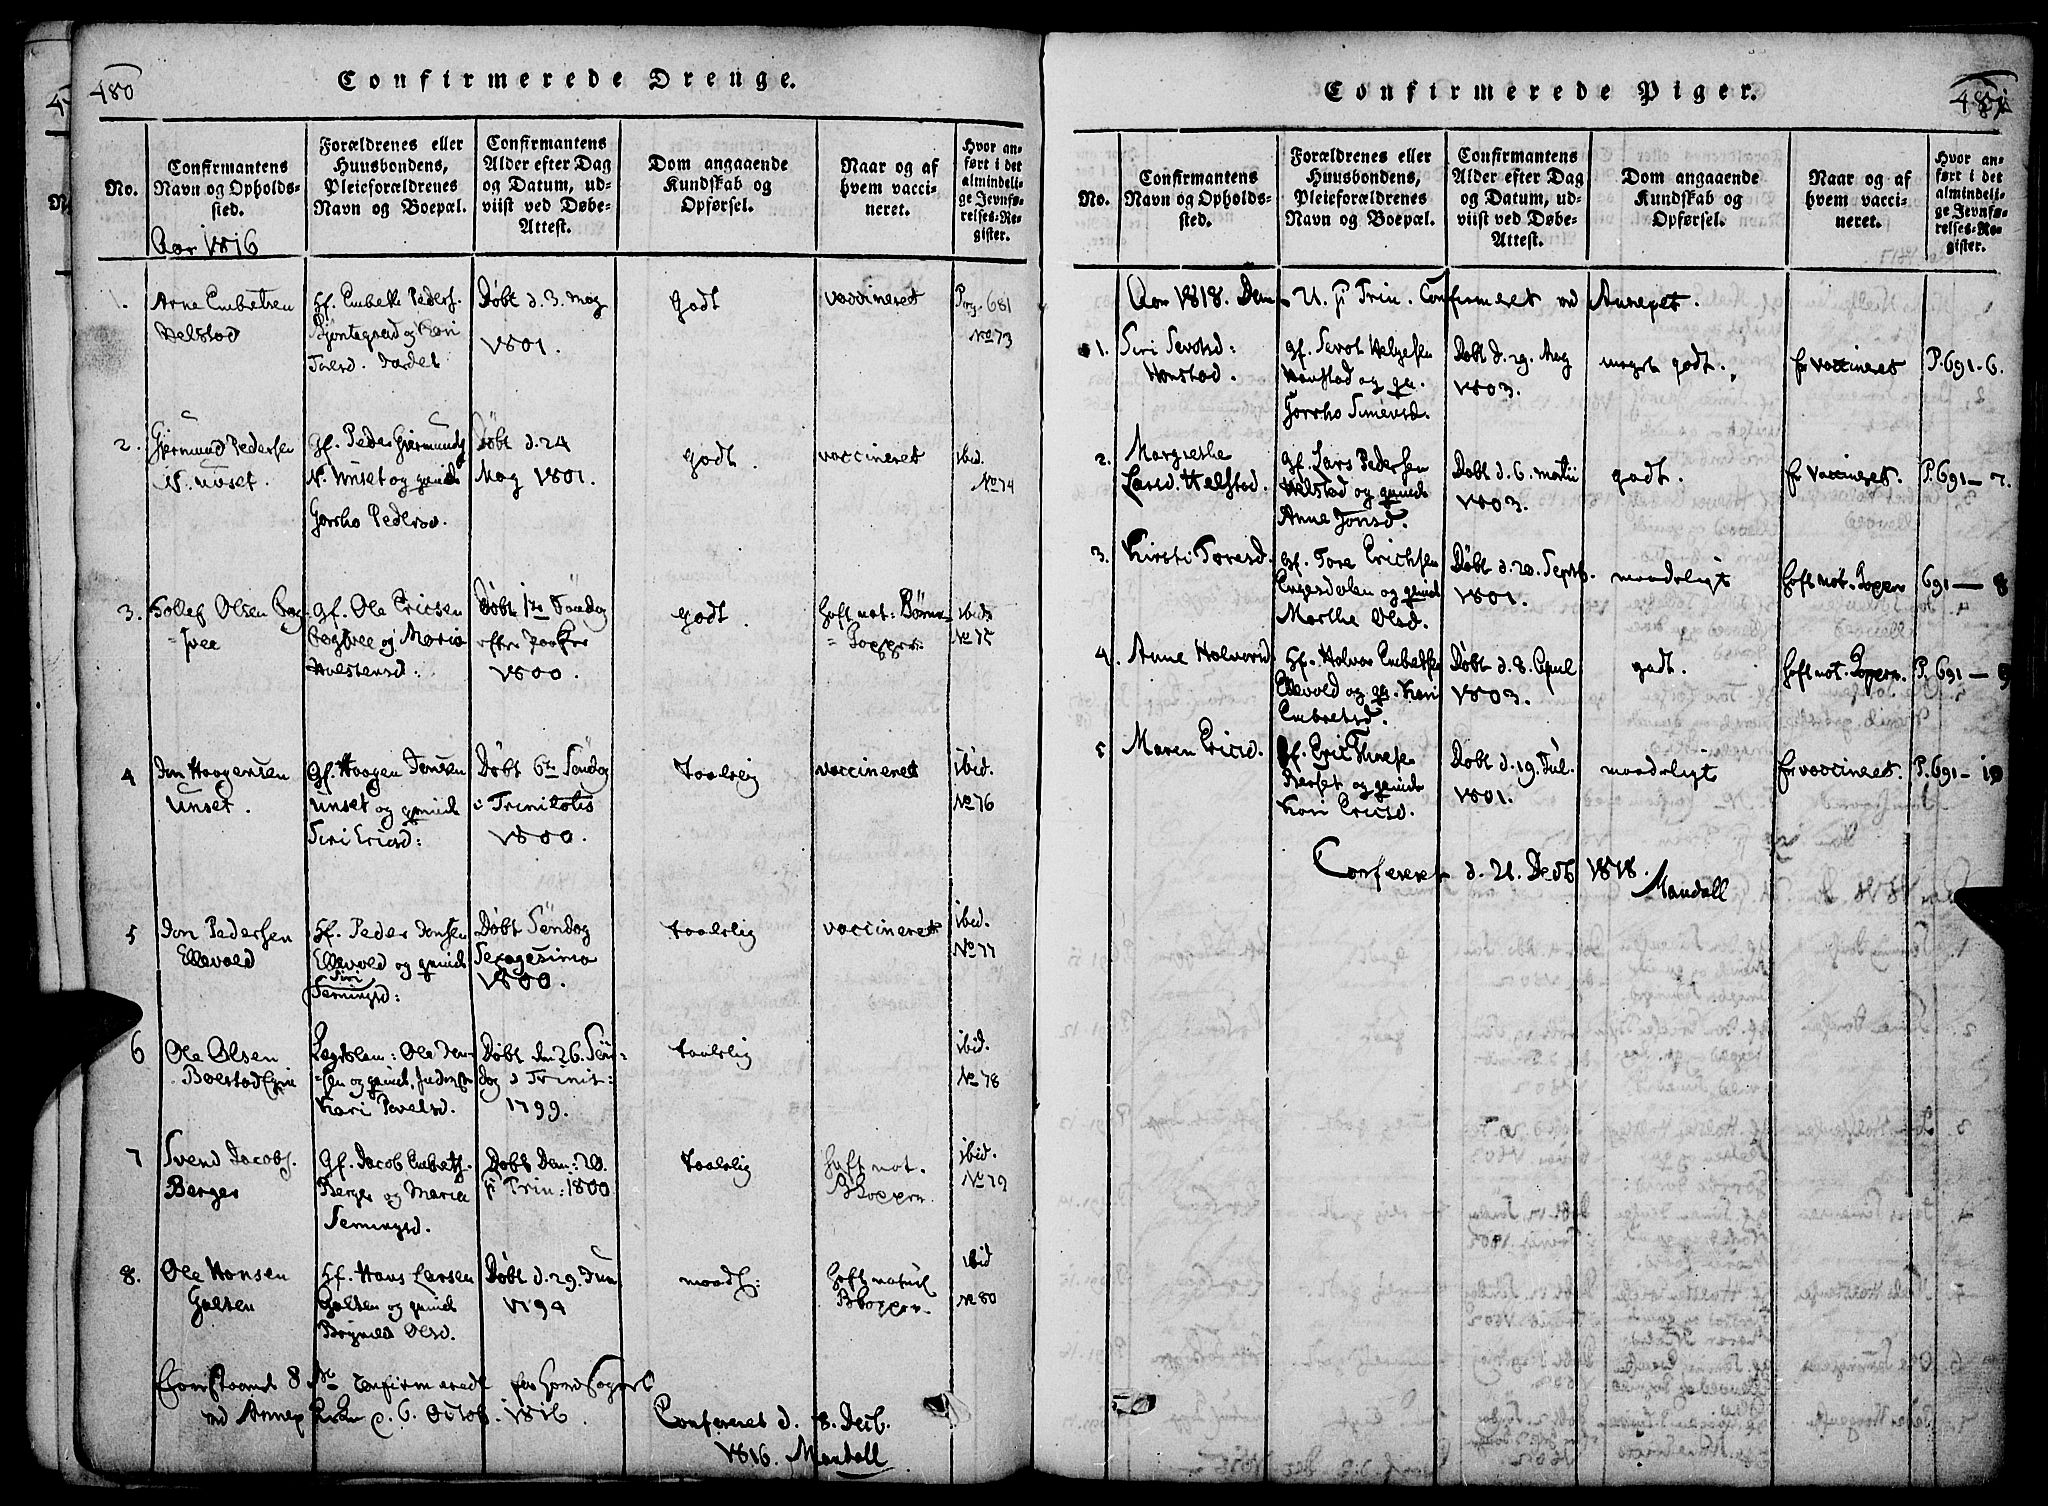 480
Confirmerede Drenge.
No.
Confirmantens
Navn og Opholds-
sted.
Forældrenes eller
Huusbondens,
Pleieforældrenes
Navn og Boepæl.
Confirmantens
Alder efter Dag
og Datum, ud-
viist ved Døbe-
Attest.
Dom angaaende
Kundskab og
Opførsel.
Naar og af
hvem vacci-
neret.
Hvor an-
ført i det
almindeli-
ge Jevnfø-
relses-Re-
gister.
Aar 1816
1.
Arne Embetsen
Helstad
Gf. Embett Peders.
og Kari
Døbt d. 3. May
1801.
Godt
vaccineret
Pag. 681
No 73
2.
Gjermund Pedersen
N. Unset.
Gf. Peder Gjermunds
N. Unset og qvinde
Gorrho Pedersd.
Døbt d. 24
May 1801.
Godt.
vaccineret
ibid.
No 74
3.
Tollef Olsen
Gf. Ole Ericsen
og Maria
Halstensd:
Døbt 1te Søndag
efter Paaske
1800.
Godt.
haft nat: Børne-
Kopper.
ibid.
No 75
4
Jon Haagensen
Unset.
Gf. Haagen Jonsen
Unset og qvinde
Siri Ericsd:
Døbt 6te Søndag
i Trinitatis
1800.
taalelig
vaccineret
ibid.
No 76
5
Jon Pedersen
Ellevold
Hf. Peder Jonsen
Ellevold og qvinde
Siri
Semingsd:
Døbt Søndag
Sexagesima
1800.
taalelig
vaccineret
ibid.
No 77
6
Ole Olsen
Bolstad
Ole Jon-
sen og qvinde
Kari Povelsd.
Døbt den 26. Søn-
dag i Trinit:
1799.
taalelig
ibid.
No 78
7
Svend Jacobs.
Berger
Gf. Jacob Embets.
Berger og Maria
Semingsd.
Døbt Dom: 20.
p Trin: 1800
taalelig
haft nat.
BKopper.
ibid.
No 79
8.
Ole Hansen
Galten
Hf. Hans Larsen
Galten og qvinde
Olsd.
Døbt d. 29. Jun
1794
maadl:
haft naturl
BKopper
ibid
No 80
8 confirmerede
ved Annex Kirken d. 6. Octob. 1816.
Confereret d. 8. Decb.
1816. Mandall
481
Confirmerede Piger.
No.
Confirmantens
Navn og Opholds-
sted.
Forældrenes eller
Huusbondens,
Pleieforældrenes
Navn og Boepæl.
Confirmantens
Alder efter Dag
og Datum, ud-
viist ved Døbe-
Attest.
Dom angaaende
Kundskab og
Opførsel.
Naar og af
hvem vacci-
neret.
Hvor an-
ført i det
almindeli-
ge Jevnfø-
relses-Re-
gister.
Aar 1818. Dom. 21. p Trin. Confirmeret ved Annexet.
1.
Siri Sevatsd:
Hanstad.
Gf. Sevat Helgesen
Hanstad og qv.
Gorrho Simensd.
Døbt d. 29. May
1803.
meget godt.
er vaccineret
P. 691-6.
2.
Margrethe
Larsd. Helstad.
Gf. Lars Pedersen
Helstad og qvinde
Anne Jonsd.
Døbt d. 6. Martii
1803.
godt.
er vaccineret.
P. 691-7.
3.
Kirsti Toresd.
Gf. Tore Erichsen
Engerdalen og qvinde
Marthe Olsd.
Døbt d. 20. Septb.
1801.
maadeligt
haft nat. Kopper
691-8
4.
Anne Halvorsd.
Hf. Halvor Embetsen
Ellevold og qv. Kari
Embretsd.
Døbt d. 8. April
1803.
godt.
haft nat. Kopper
P. 691-9
5
Maren Ericsd.
Gf. Eric
og qvinde
Kari Ericsd.
Døbt d. 19. Jul.
1801.
maadeligt
er vaccineret.
P. 691-10
Confereret d. 21. Decb 1818.
Mandall